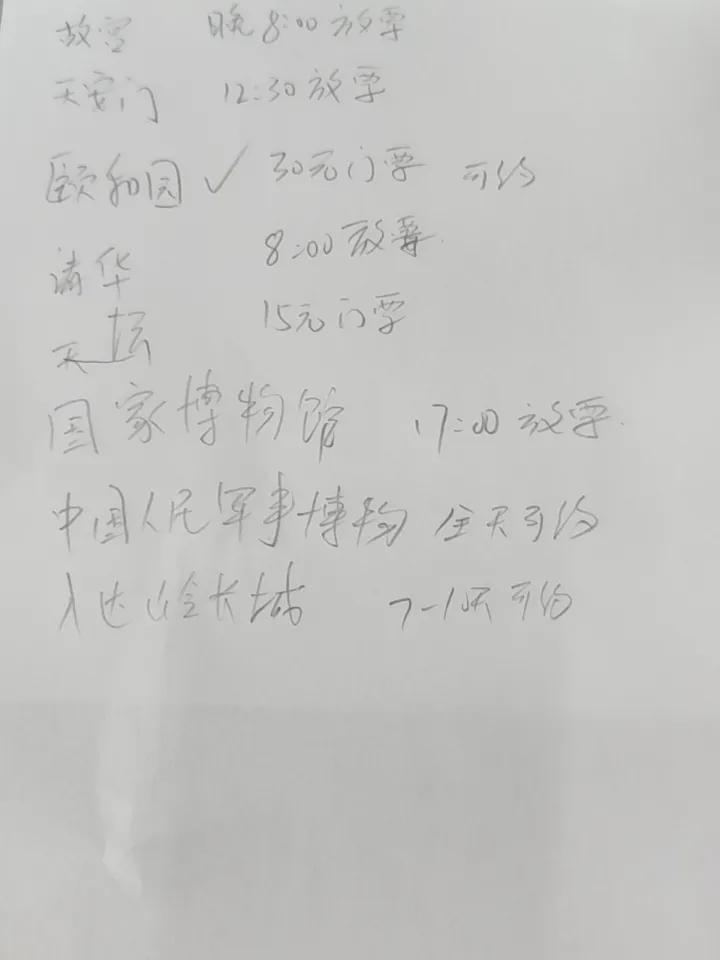 故宫 晚8:00放票
天安门 12:30放票
颐和园 ✓ 30元门票 可约
清华 8:00放票
天坛 15元门票
国家博物馆 17:00放票
中国人民军事博物 全天可约
八达岭长城 7-10天可约